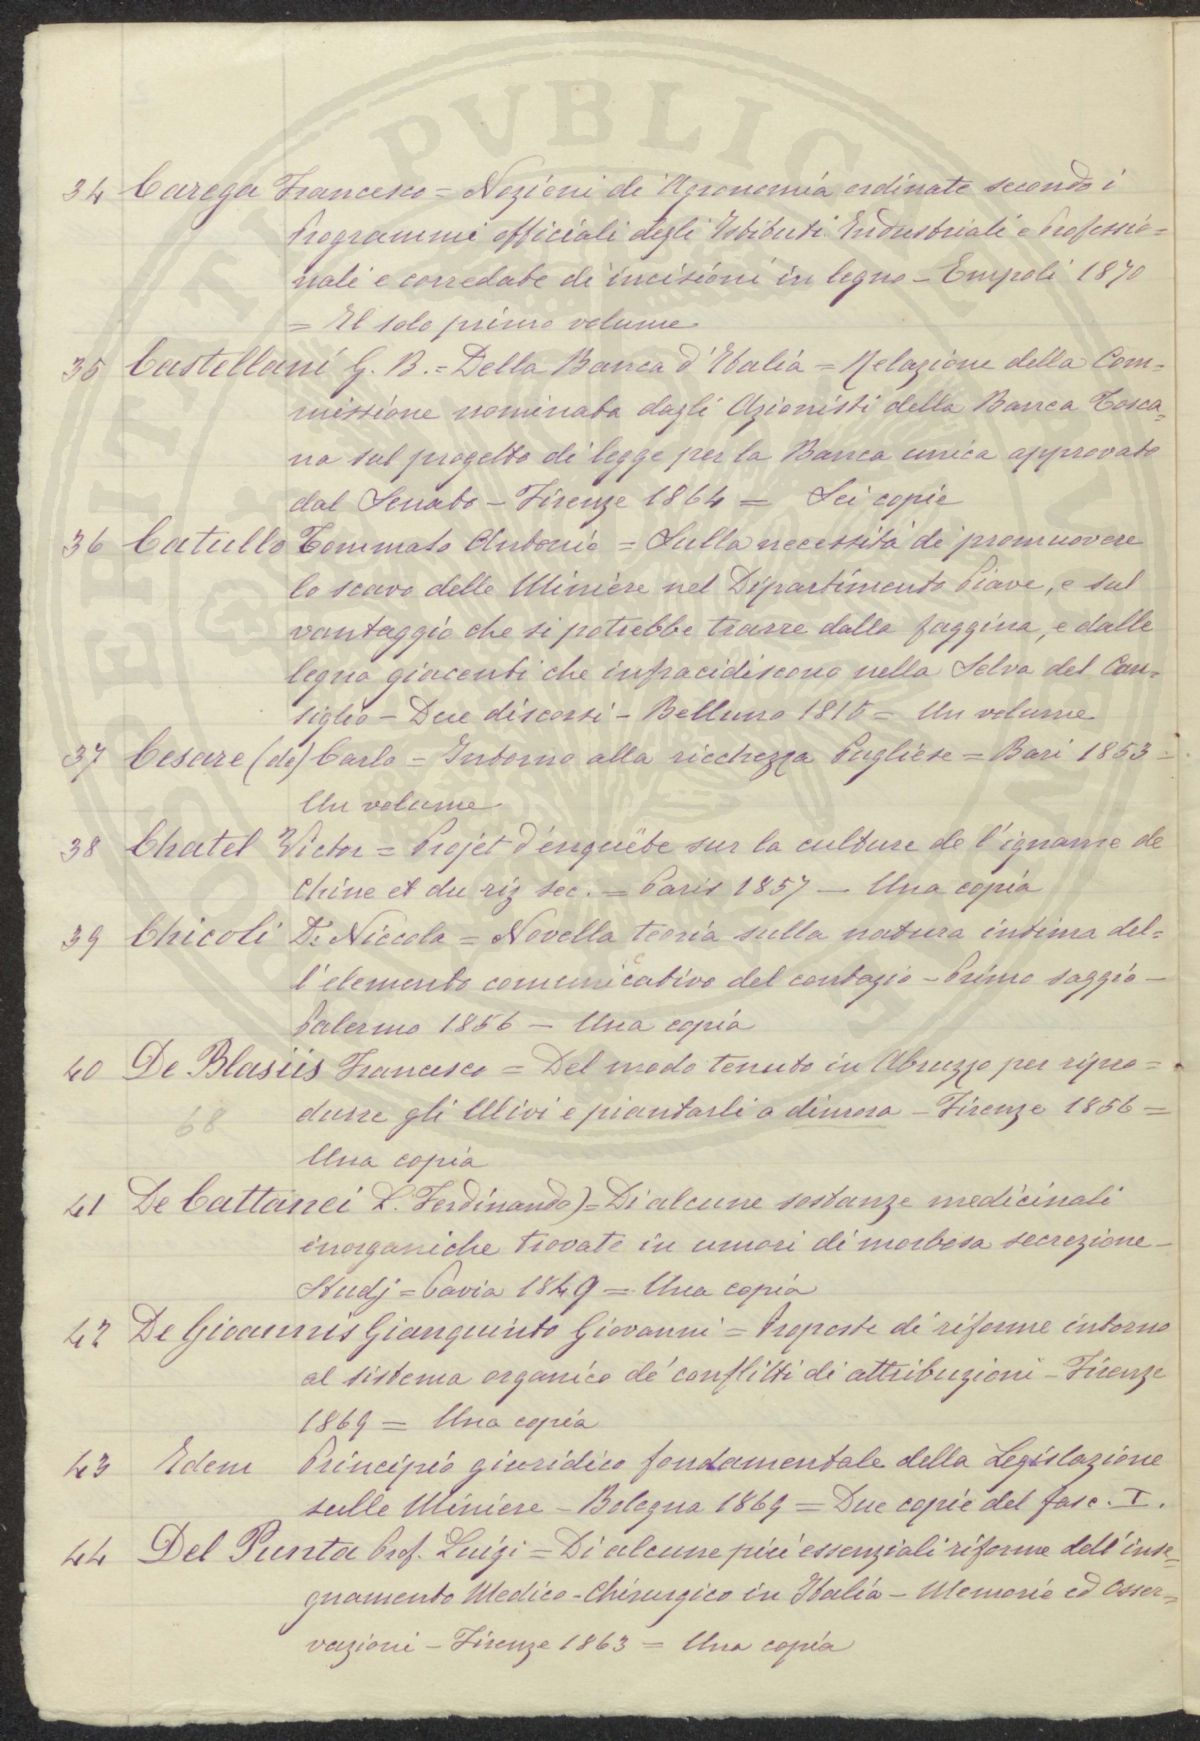 34 Carega Francesco = Nozioni di Agronomia ordinate secondo i
Programmi officiali degli Istituti Industriali e Professio=
nali e corredate di incisioni in legno – Empoli 1870
= Il solo primo volume
35 Castellani G. B. = Della Banca d'Italia = Relazione della Com=
missione nominata dagli Azionisti della Banca Tosca=
na sul progetto di legge per la Banca unica approvato
dal Senato – Firenze 1864 = Sei copie
36 Catullo Tommaso Antonio = Sulla necessità di promuovere
lo scavo delle Miniere nel Dipartimento Piave, e sul
vantaggio che si potrebbe trarre dalla faggina, e dalle
legna giacenti che infracidiscono nella Selva del Can=
siglio – Due discorsi – Belluno 1810 = Un volume
37 Cesare (de) Carlo = Intorno alla ricchezza Pugliese = Bari 1853 =
Un volume
38 Chatel Victor = Projet d'enquëte sur la culture de l'igname de
Chine et du riz sec. = Paris 1857 – Una copia
39 Chicoli Dr. Niccola = Novella teoria sulla natura intima del=
l'elemento comunicativo del contagio – Primo saggio –
Palermo 1856 – Una copia
40 De Blasiis Francesco = Del modo tenuto in Abruzzo per ripro=
durre gli Ulivi e piantarli a dimora – Firenze 1856 =
68
Una copia
41 De Cattanei L. Ferdinando) = Di alcune sostanze medicinali
inorganiche trovate in umori di morbosa secrezione –
Studj = Pavia 1849 = Una copia
42 De Gioannis Gianquinto Giovanni = Proposte di riforme intorno
al sistema organico de' conflitti di attribuzioni – Firenze
1869 = Una copia
43 Edem Principio giuridico fondamentale della Legislazione
sulle Miniere – Bologna 1869 = Due copie del fasc. I.
44 Del Punta Prof. Luigi = Di alcune più essenziali riforme dell'inse=
gnamento Medico-Chirurgico in Italia – Memorie ed Osser=
vazioni – Firenze 1863 = Una copia